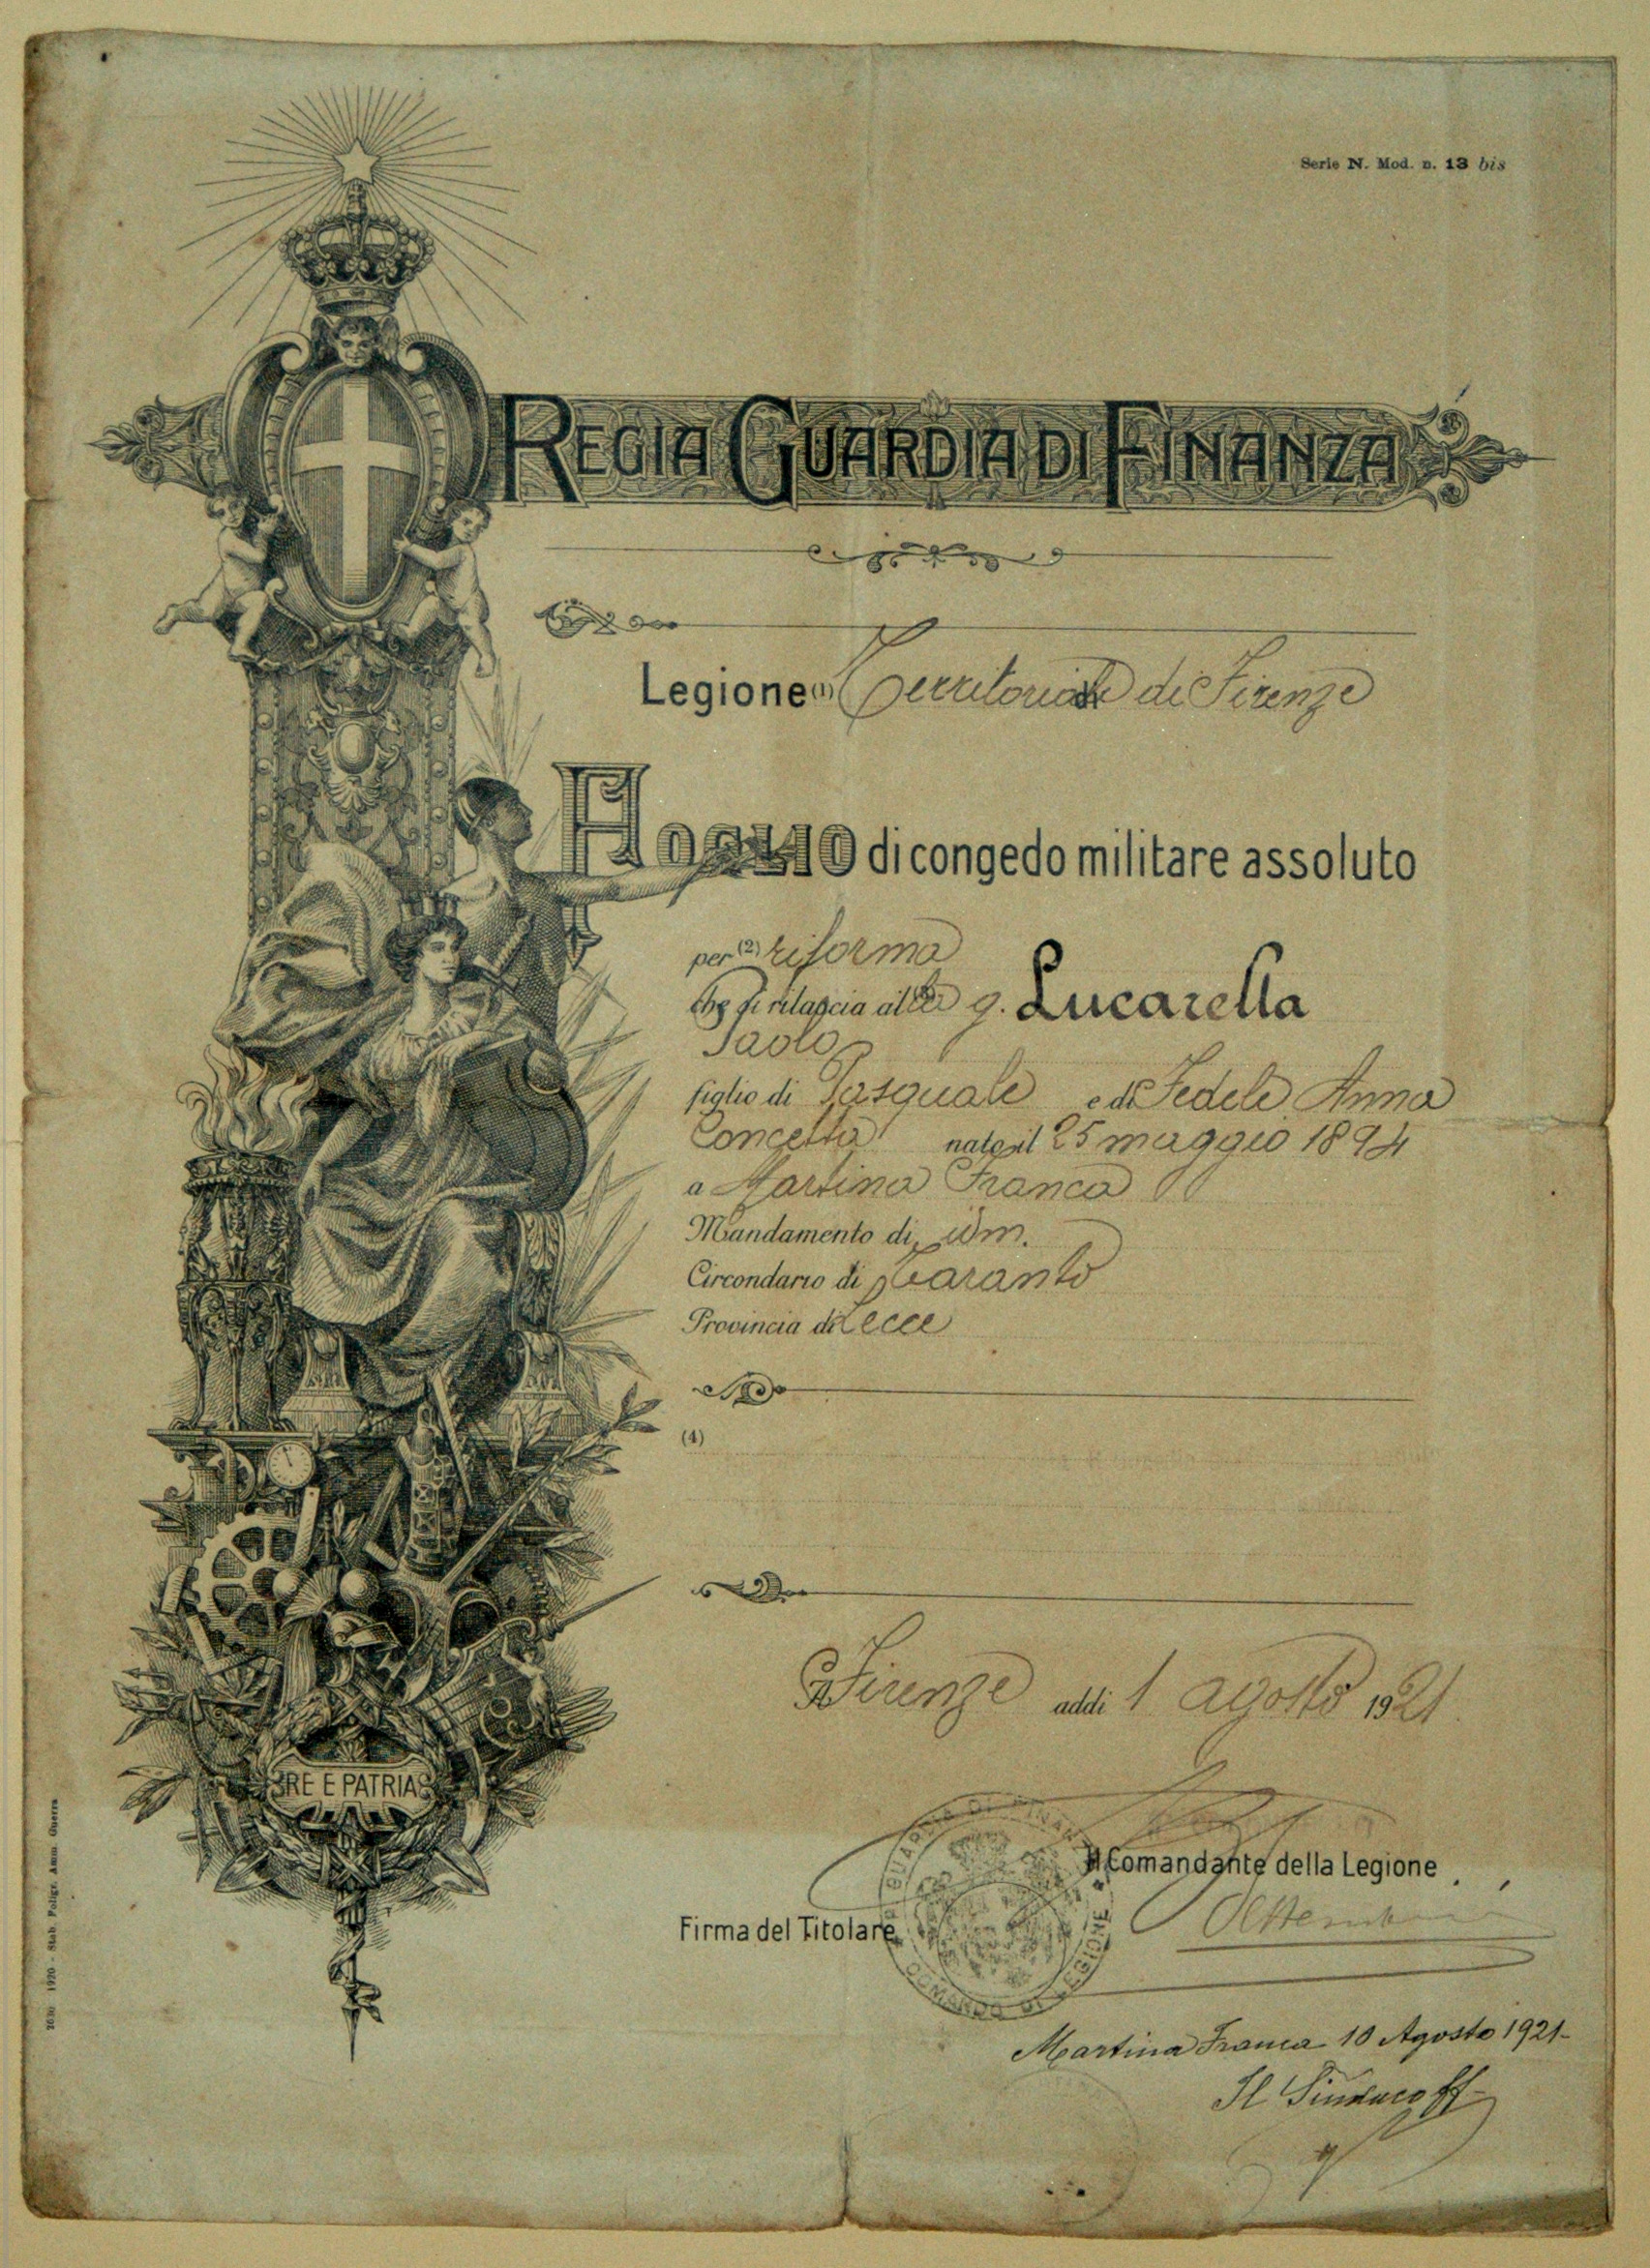 Serie N. Mod. n. 13 bis
REGIA GUARDIA DI FINANZA
Legione (1) Territoriale di Firenze
Foglio di congedo militare assoluto
per (2) riforma
che si rilascia al g. Lucarella
Paolo
figlio di Pasquale e di Fedele Anna
Concetta nato il 25 maggio 1894
a Martina Franca
Mandamento di idm.
Circondario di Taranto
Provincia di Lecce
(4)
Firenze addi 1 agosto 1921
RE E PATRIA
Il Comandante della Legione
Firma del Titolare
GUARDIA DI FINANZA
COMANDO DI LEGIONE
Martina Franca 10 Agosto 1921-
Il Sindaco ff-
2630 1920 - Stab. Poligr. Amm. Guerra